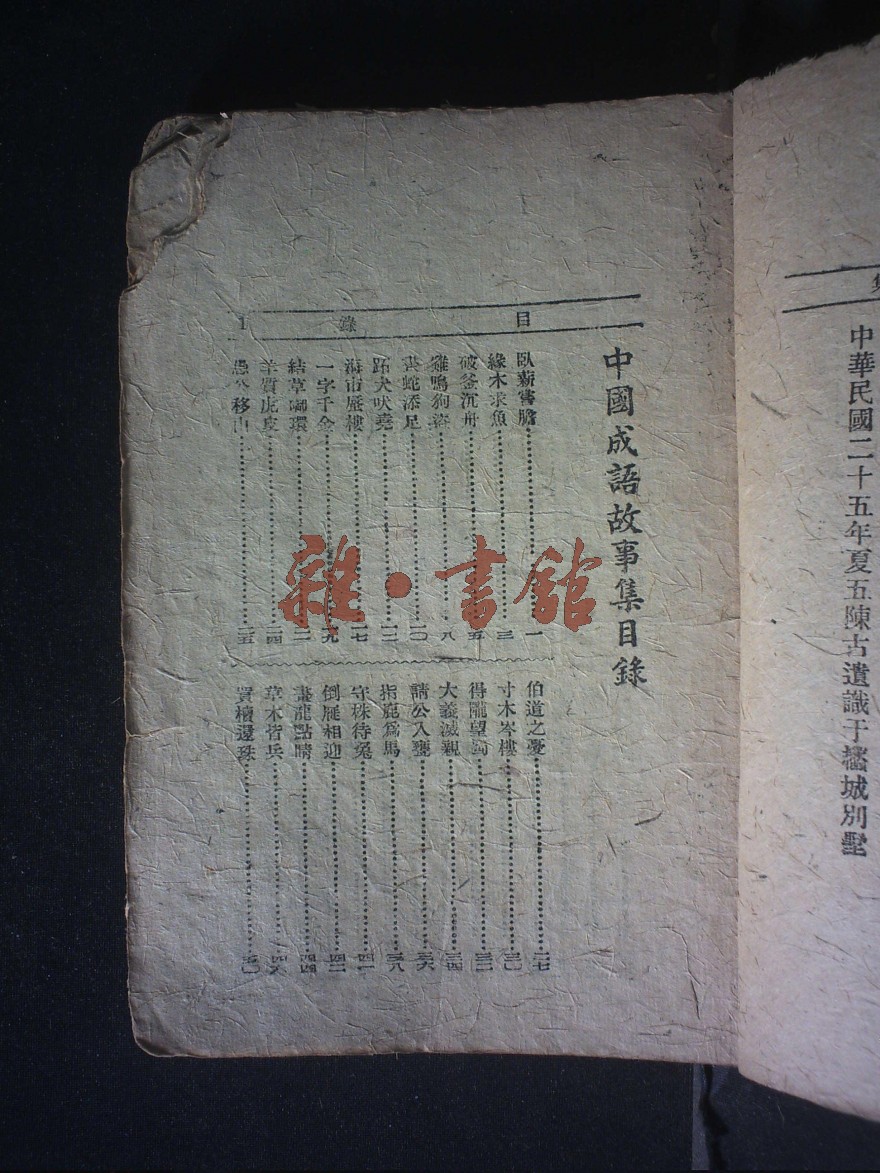 中華民國二十五年夏五陳古遺識于檇城別墅
目錄 1
中國成語故事集目錄
臥薪嘗膽 一
緣木求魚 三
破釜沉舟 五
雞鳴狗盜 八
畫蛇添足 一〇
跖犬吠堯 一二
海市蜃樓 一七
一字千金 一九
結草啣環 二一
羊質虎皮 二四
愚公移山 二五
伯道之憂 二七
寸木岑樓 三〇
得隴望蜀 三二
大義滅親 三四
請公入甕 三六
指鹿爲馬 三八
守株待兔 四一
倒屣相迎 四二
畫龍點睛 四四
草木皆兵 四六
買櫝還珠 五〇
雜·書館